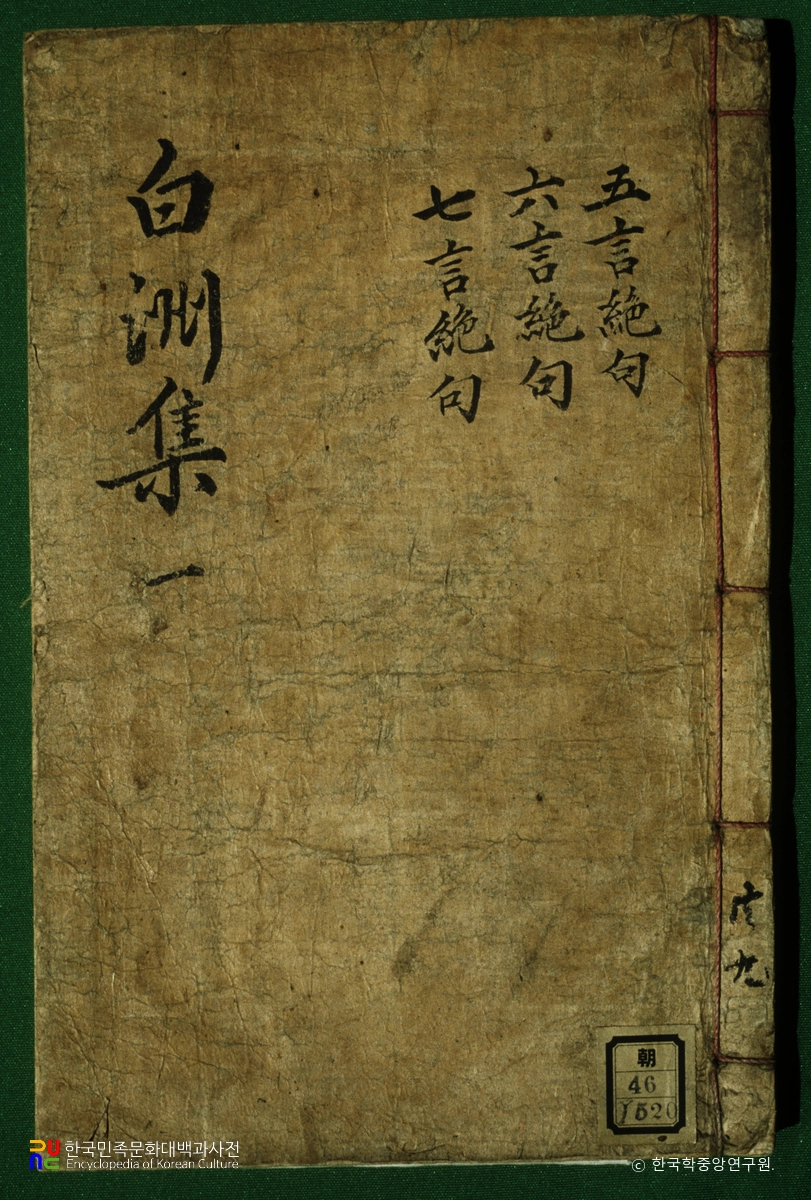 五言絶句
六言絶句
七言絶句
白洲集 一
共九
朝
46
1520
한국민족문화대백과사전
Encyclopedia of Korean Culture
ⓒ 한국학중앙연구원.